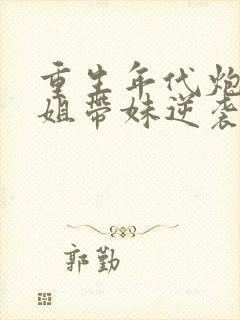 重生年代炮
姐带妹逆袭
郭勤